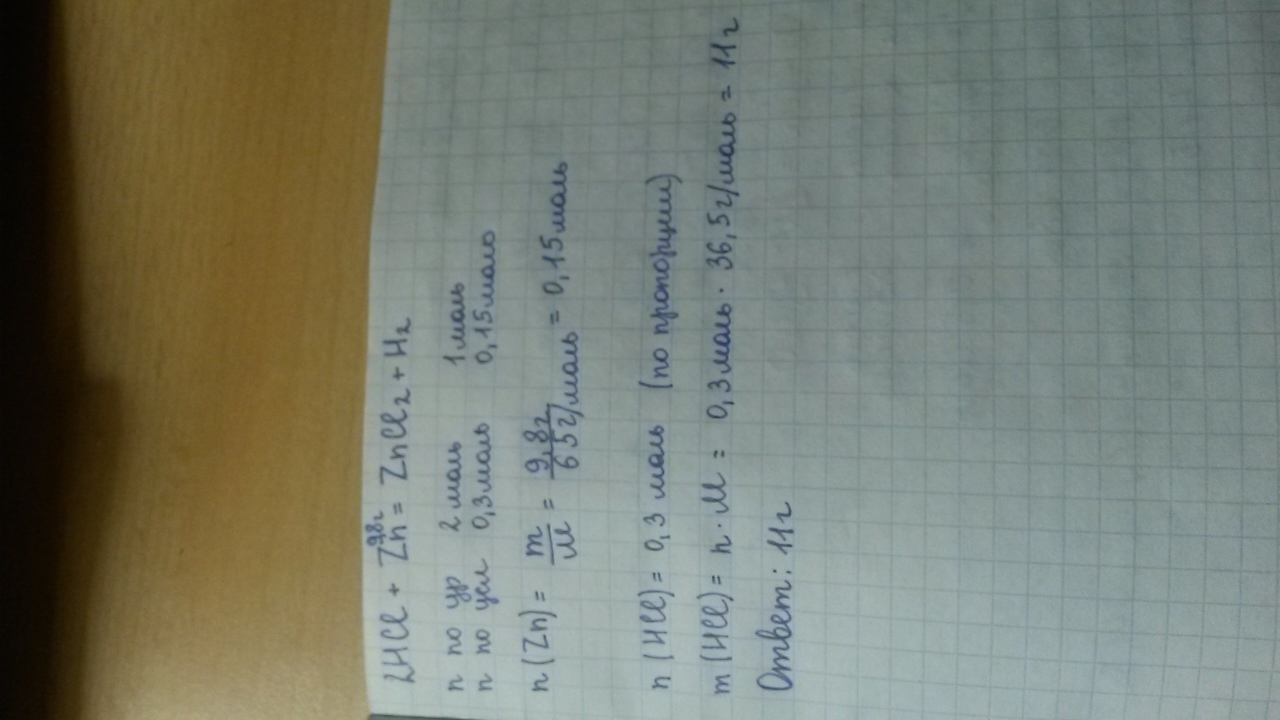 9,8г
2HCl + Zn = ZnCl2 + H2
n по ур 2 моль 1 моль
n по усл 0,3 моль 0,15 моль
n (Zn) = m/M = 9,8г/65г/моль = 0,15 моль
n (HCl) = 0,3 моль (по пропорции)
m (HCl) = n · M = 0,3 моль · 36,5г/моль = 11г
Ответ: 11г